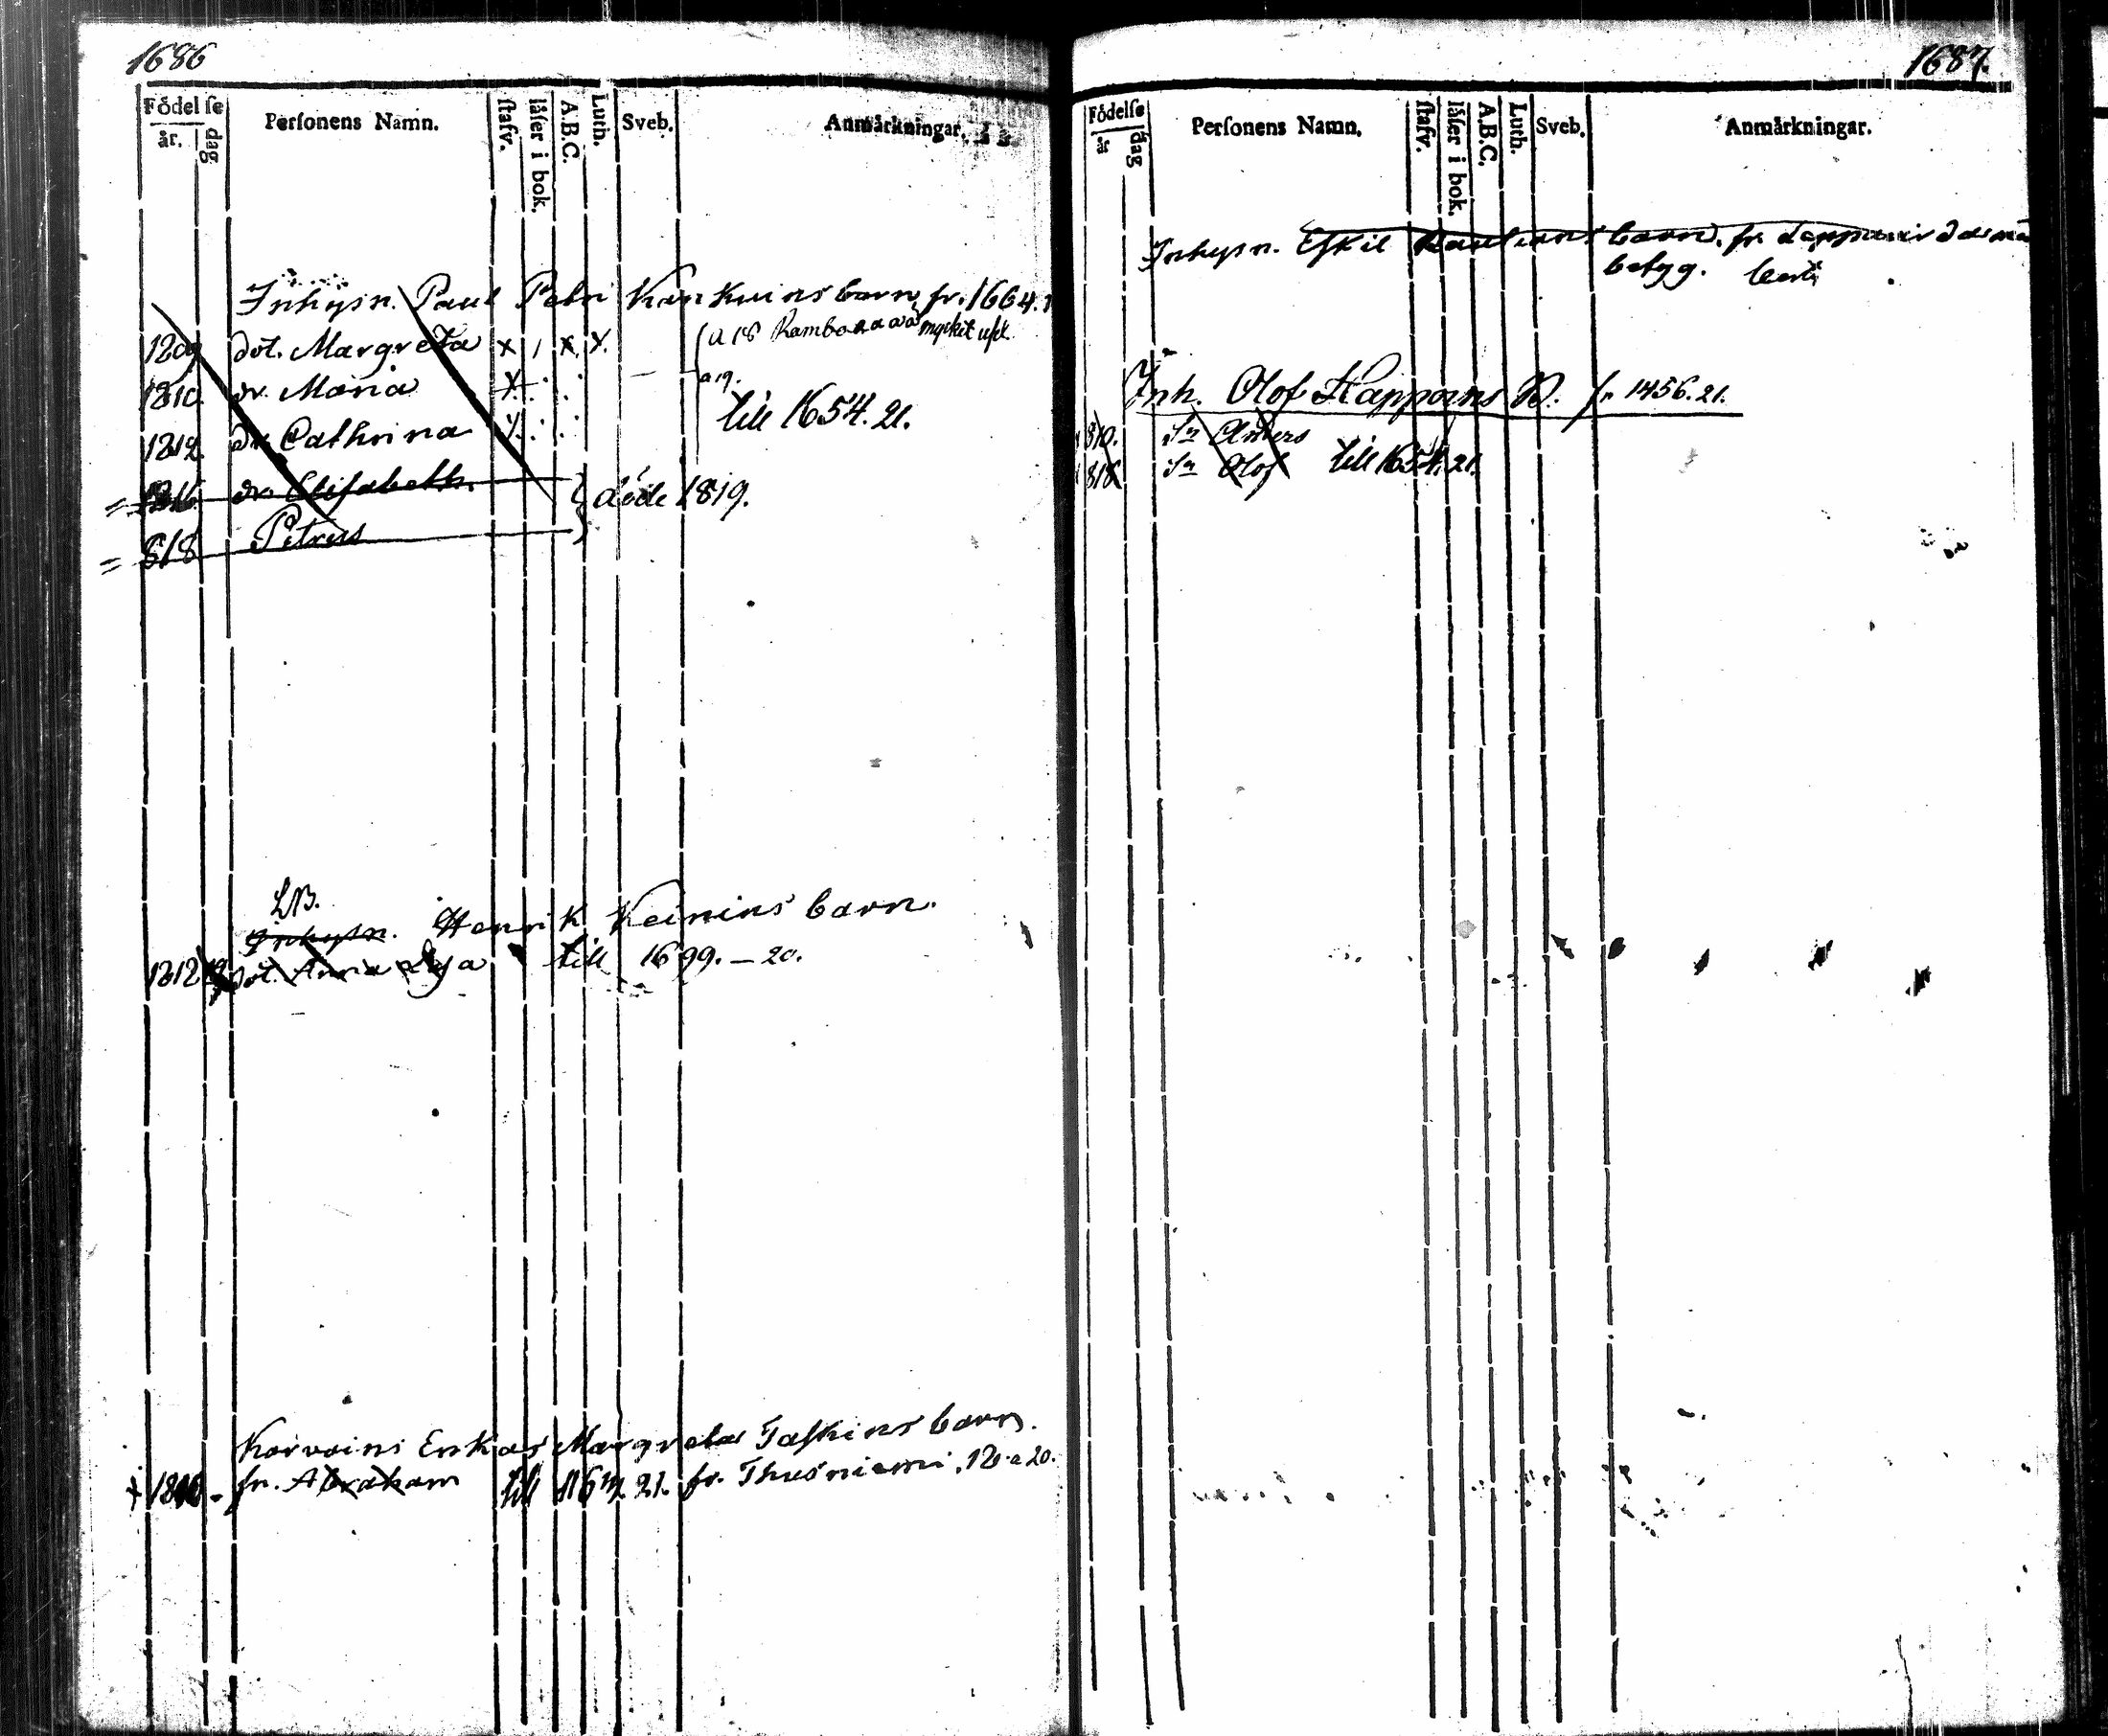 1686
Födelſe
år. dag.
Perſonens Namn. ſtafv. låſer i bok. A.B.C. Luth. Sveb. Anmärkningar.
Inhysn. Paul Petri Kankuins barn, fr. 1664.
1809 dot. Margreta x x x. mycket
1810. dr. Maria x a 19.
till 1654. 21.
1812. dr. Cathrina
1816 dr. Elisabeth.
döde 1819.
818 Petrus
LB.
Inhysn. Henrik Keinins barn.
1812 dot. Anna till 1699. – 20.
Korvoins Enkas Margretas Taskins barn.
Abraham till 21. fr. Thusniemi.
1687.
Födelſe
år dag
Perſonens Namn. ſtafv. låſer i bok. A.B.C. Luth. Sveb. Anmärkningar.
Inhysn. Eskil barn. fr.
betyg.
Inh. Olof Happoins B. fr 1456. 21.
810. Sn Anders
818 Sn Olof till 1654. 21.